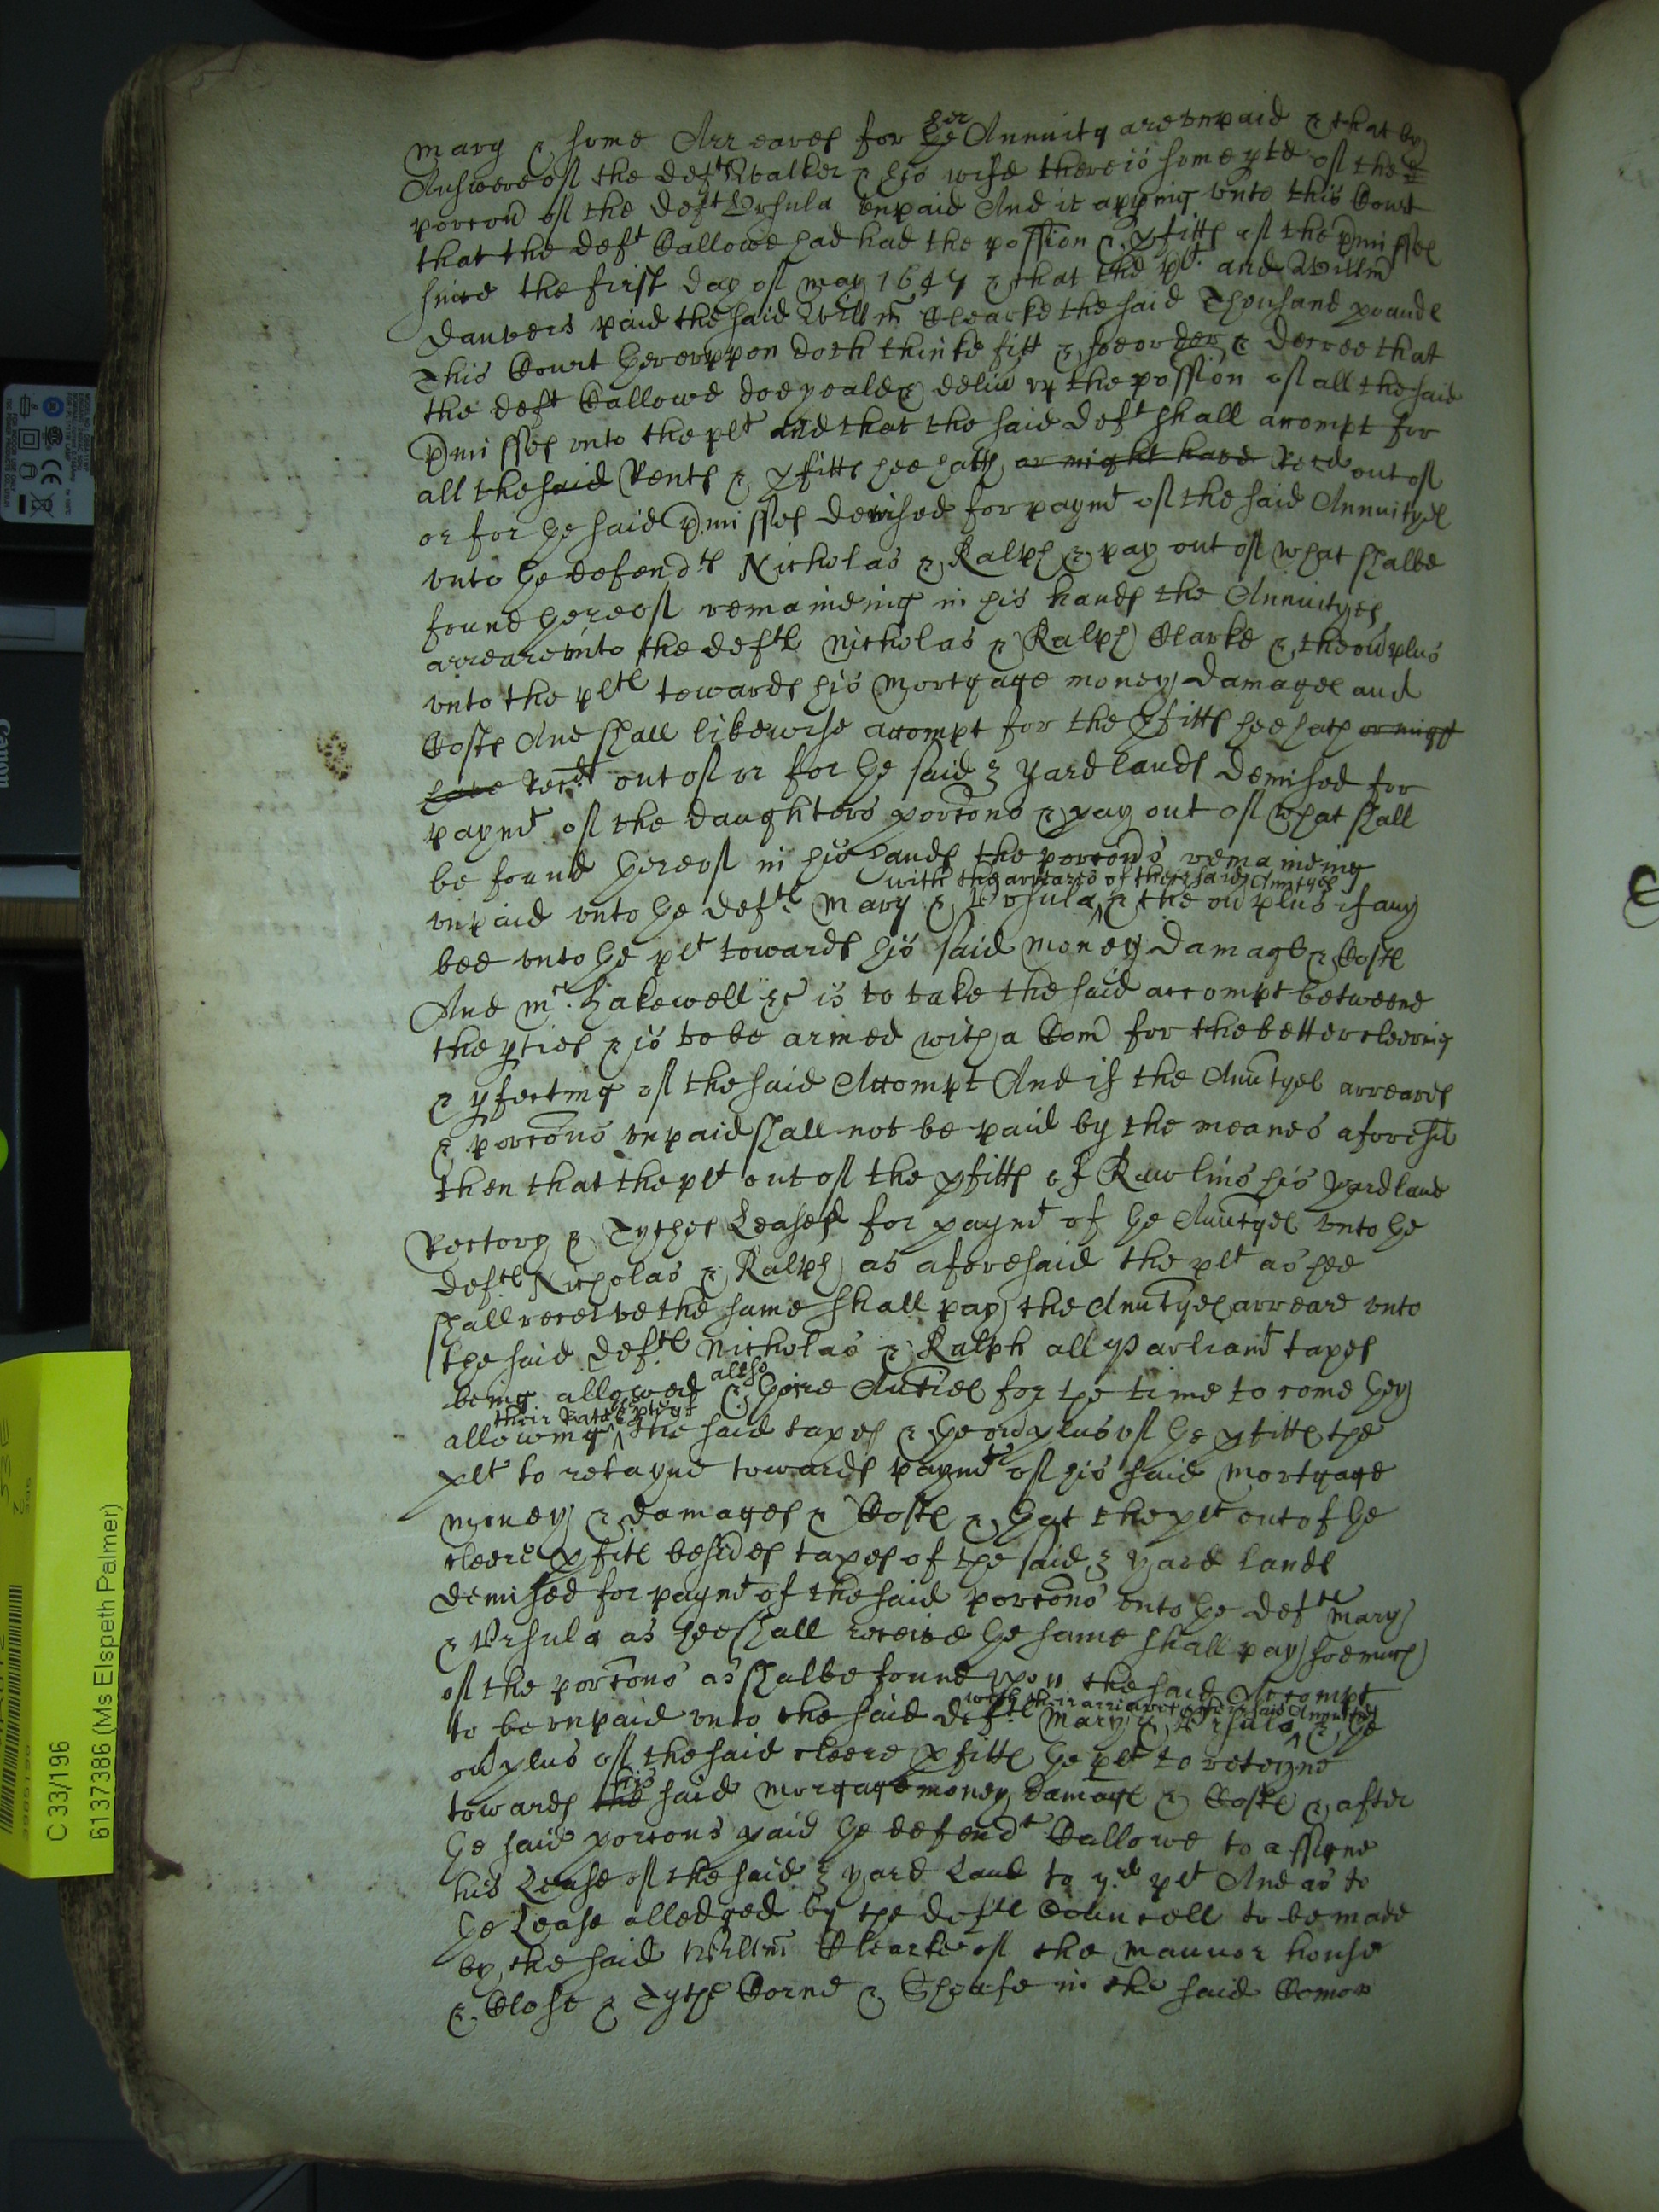 Mary & some Arreares for her Annuity are vnpaid & that by
Answere of the deft Walker & his wife there is some pte of the
porcon of the deft Vrsula vnpaid And it appring vnto this Court
that the deft Callowe had had the possion & pfitts of the pmisses
since the first day of May 1647 & that the plt and Willm
Danvers paid the said Willm Clearke the said Thousand pounds
This Court herevppon doth thinke fitt & soe order & decree that
the deft Callowe doe yeald & deliv vp the possion of all the said
pmisses vnto the plt and that the said deft shall accompt for
all the said Rents & pfitts hee hath or might have Recd out of
or for the said pmisses demised for paymt of the said Annuityes
vnto the defendts Nicholas & Ralph & pay out of what shalbe
found thereof remaineing in his hands the Annuityes
arreare vnto the defts Nicholas & Ralph Clarke & the ovplus
vnto the plts towards his Mortgage money damages and
Costs And shall likewise accompt for the pfitts hee hath or might
have Recd out of or for the said 3 yard lands demised for
paymt of the daughters porcons & pay out of what shall
be found thereof in his hands the porcons remaineing
with the arreares of their said Annutyes
vnpaid vnto the defts Mary & Vrsula & the ovplus if any
bee vnto the plt towards his said money damage & Costs
And Mr. Hakewell &c is to take the said accompt betweene
the pties & is to be armed with a Com for the better cleering
& pfecting of the said Accompt And if the Annutyes arreares
& porcons vnpaid shall not be paid by the meanes aforesd
then that the plt out of the pfitts of Rawlins his yard land
Rectory & Tythes Leased for paymt of the Annutyes vnto the
defts Nicholas & Ralph as aforesaid the plt as hee
shall receive the same shall pay the Annutyes arreare vnto
the said defts Nicholas & Ralph all Parliamt taxes
being allowed & alsoe theire Anties for the time to come they
allowing their Rateable pt of the said taxes & the ovplus of the pfitts the
plt to retayne towards paymt of his said Mortgage
money & damages & Costs & that the plt out of the
cleere pfitts besides taxes of the said 3 yard lands
demised for paymt of the said porcons vnto the defts Mary
& Vrsula as hee shall receive the same shall pay soe much
of the porcons as shalbe found vpon the said Accompt
with their arreares of their said Annutyes
to be vnpaid vnto the said defts Mary & Vrsula & the
ovplus of the said cleere pfitts the plt to reteyne
towards the his said morgage money damage & Costs & after
the said porcons paid the defendt Callowe to assigne
his Lease of the said 3 yard Land to the plt And as to
the Lease alledged by the defts Councell to be made
by the said Willm Clearke of the Mannor house
& Close & Tyth Corne & Sheafe in the said Comon
C 33/196
6137386 (Ms Elspeth Palmer)
Canon